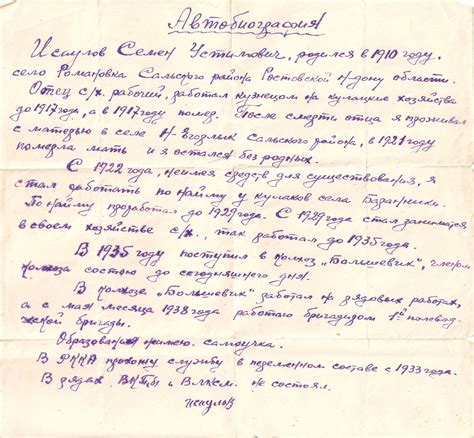 Автобиография
Искулов Семен Устимович, родился в 1910 году,
село Романовка Сальского района Ростовской н-дону области.
Отец с/х. рабочий, работал кузнецом на кулацкие хозяйства
до 1917 года, а в 1917 году помер. После смерти отца я проживал
с матерью в селе Н-Егорлык Сальского района, в 1921 году
померла мать и я остался без родных.
С 1922 года, не имея средств для существования, я
стал работать по найму у кулаков села Бараники.
По найму проработал до 1929 года. С 1929 года стал заниматся
в своем хозяйстве с/х., так работал до 1935 года.
В 1935 году поступил в колхоз „Большевик", членом
колхоза состою до сегодняшнего дня.
В колхозе „Большевик" работал на рядовых работах,
а с мая месяца 1938 года работаю бригадиром 1й полевод-
ческой бригады.
Образование имею самоучка.
В РККА прохожу службу в переменном составе с 1933 года.
В рядах ВКПб и ВЛКСМ не состоял.
Искулов